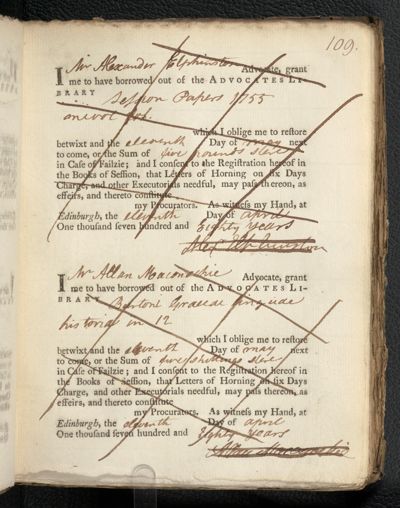 109.
I Mr Alexander Elphinston Advocate, grant
me to have borrowed out of the ADVOCATES LI-
BRARY
Session Papers 1755
one vol
which I oblige me to restore
betwixt and the eleventh Day of may next
to come, or the Sum of five pounds
in Case of Failzie; and I consent to the Registration hereof in
the Books of Session, that Letters of Horning on six Days
Charge, and other Executorials needful, may pass thereon, as
effeirs, and thereto constitute
my Procurators. As witness my Hand, at
Edinburgh, the eleventh Day of april
One thousand seven hundred and Eighty Years
Alex Elphinston
I Mr Allan Maconochie Advocate, grant
me to have borrowed out of the ADVOCATES LI-
BRARY Burtoni Graecae linguae
historia in 12
which I oblige me to restore
betwixt and the eleventh Day of may next
to come, or the Sum of shillings
in Case of Failzie; and I consent to the Registration hereof in
the Books of Session, that Letters of Horning on six Days
Charge, and other Executorials needful, may pass thereon, as
effeirs, and thereto constitute
my Procurators. As witness my Hand, at
Edinburgh, the eleventh Day of april
One thousand seven hundred and Eighty Years
Allan Maconochie